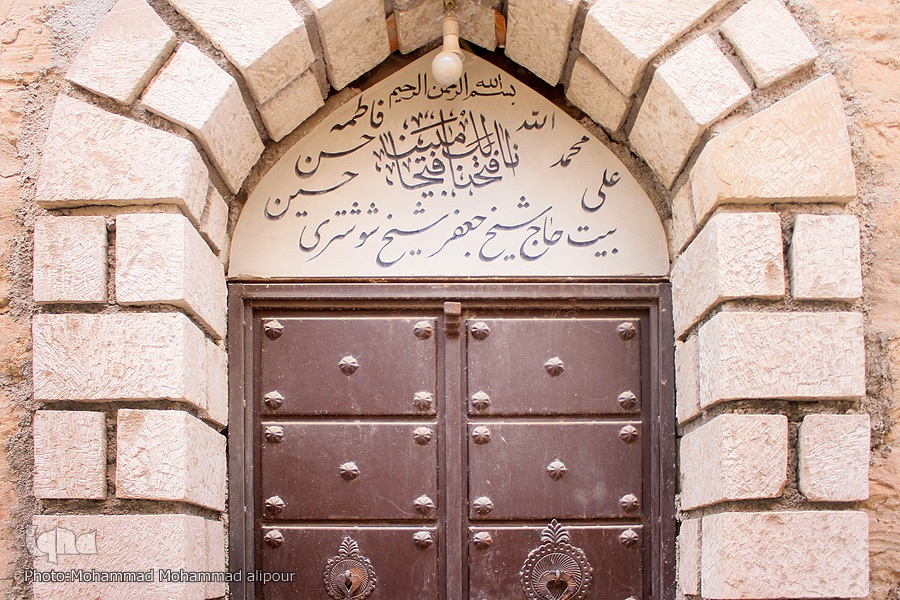 بسم الله الرحمن الرحیم
الله محمد علی فاطمه حسن حسین
انا فتحنا لک فتحا مبینا
بیت حاج شیخ جعفر شیخ شوشتری
iqna
Photo:Mohammad Mohammad alipour